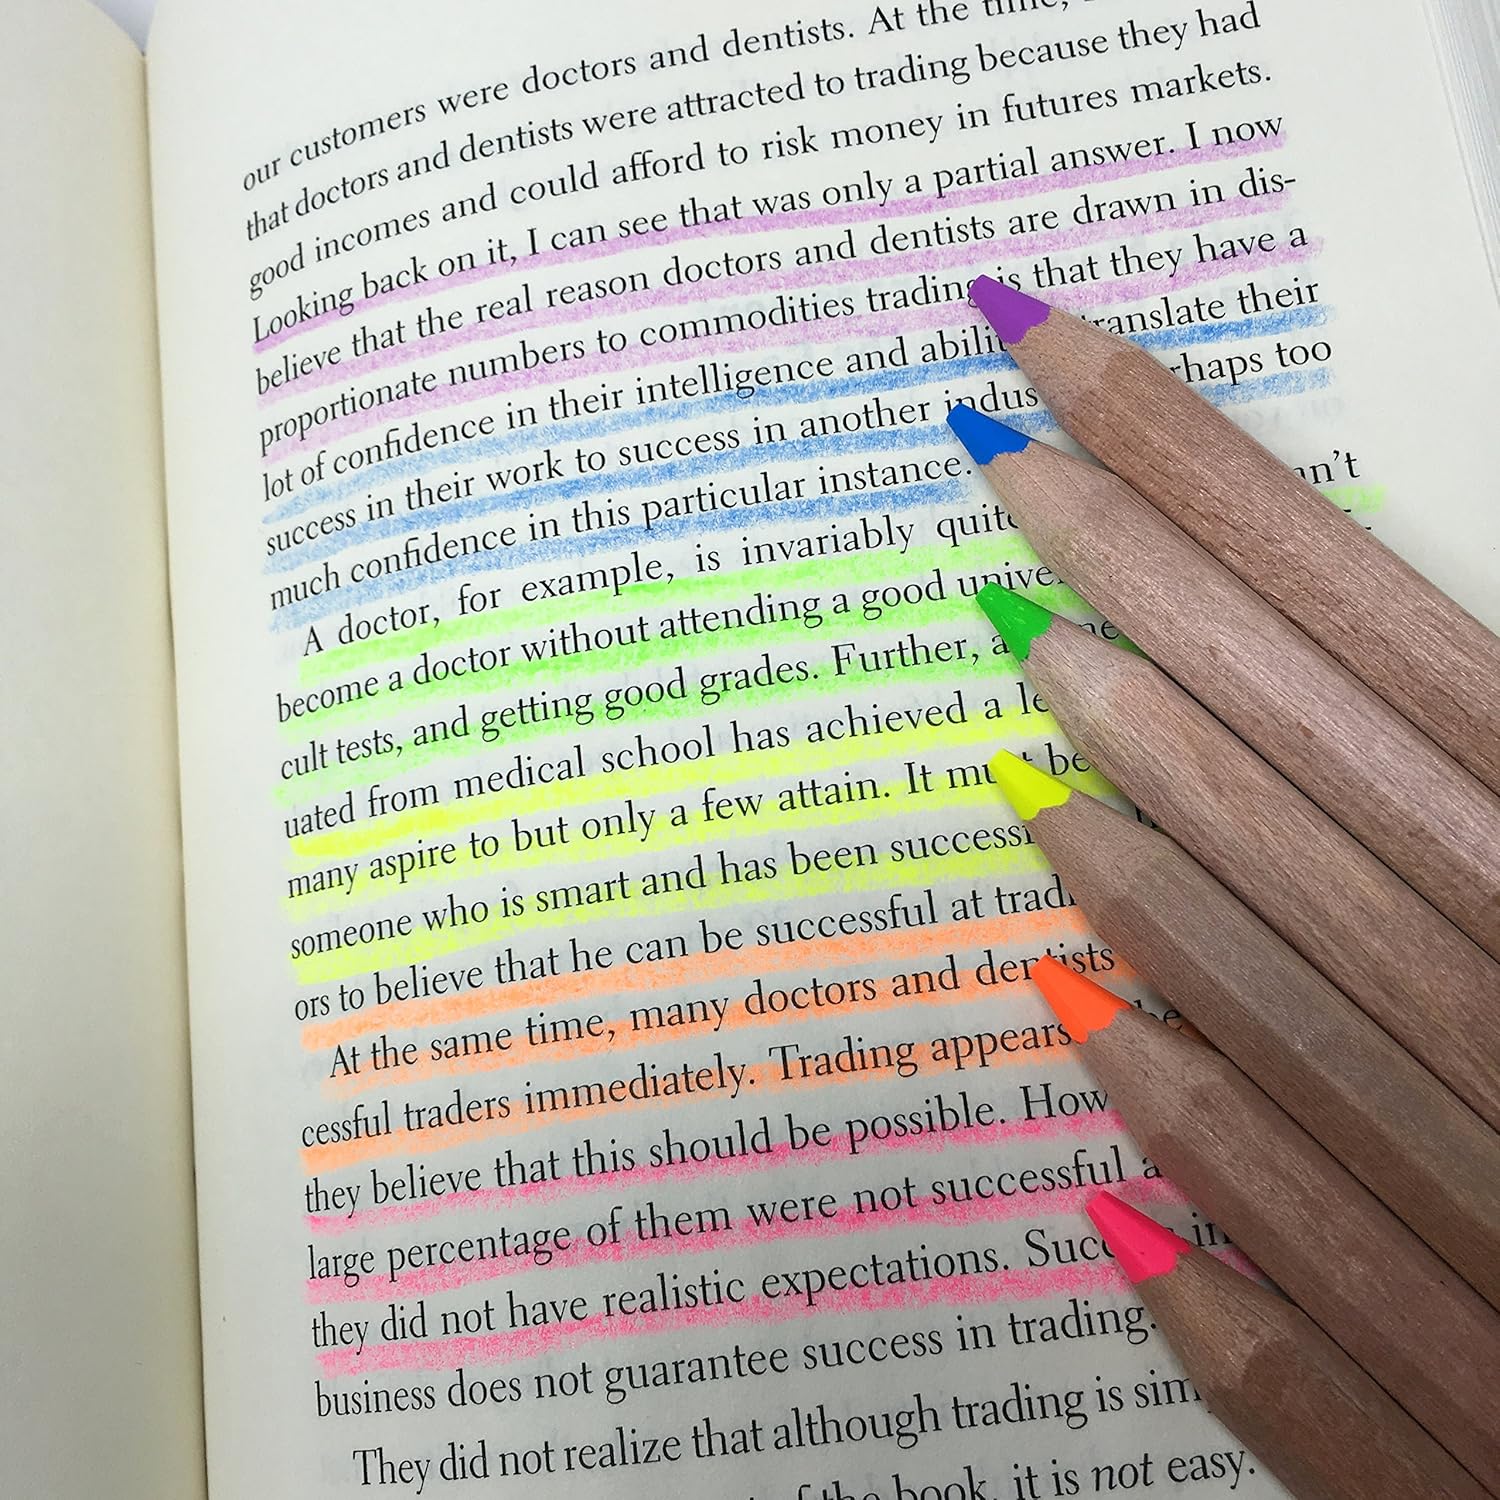 our customers were doctors and dentists. At the time,
that doctors and dentists were attracted to trading because they had
good incomes and could afford to risk money in futures markets.
Looking back on it, I can see that was only a partial answer. I now
believe that the real reason doctors and dentists are drawn in dis-
proportionate numbers to commodities trading is that they have a
lot of confidence in their intelligence and translate their
success in their work to success in another too
much confidence in this particular instance.
A doctor, for example, is invariably quite
become a doctor without attending a good
cult tests, and getting good grades. Further,
uated from medical school has achieved a
many aspire to but only a few attain. It must be
someone who is smart and has been
ors to believe that he can be successful at
At the same time, many doctors and dentists
cessful traders immediately. Trading appears
they believe that this should be possible.
large percentage of them were not successful
they did not have realistic expectations. in
business does not guarantee success in trading.
They did not realize that although trading is
of the book, it is not easy.